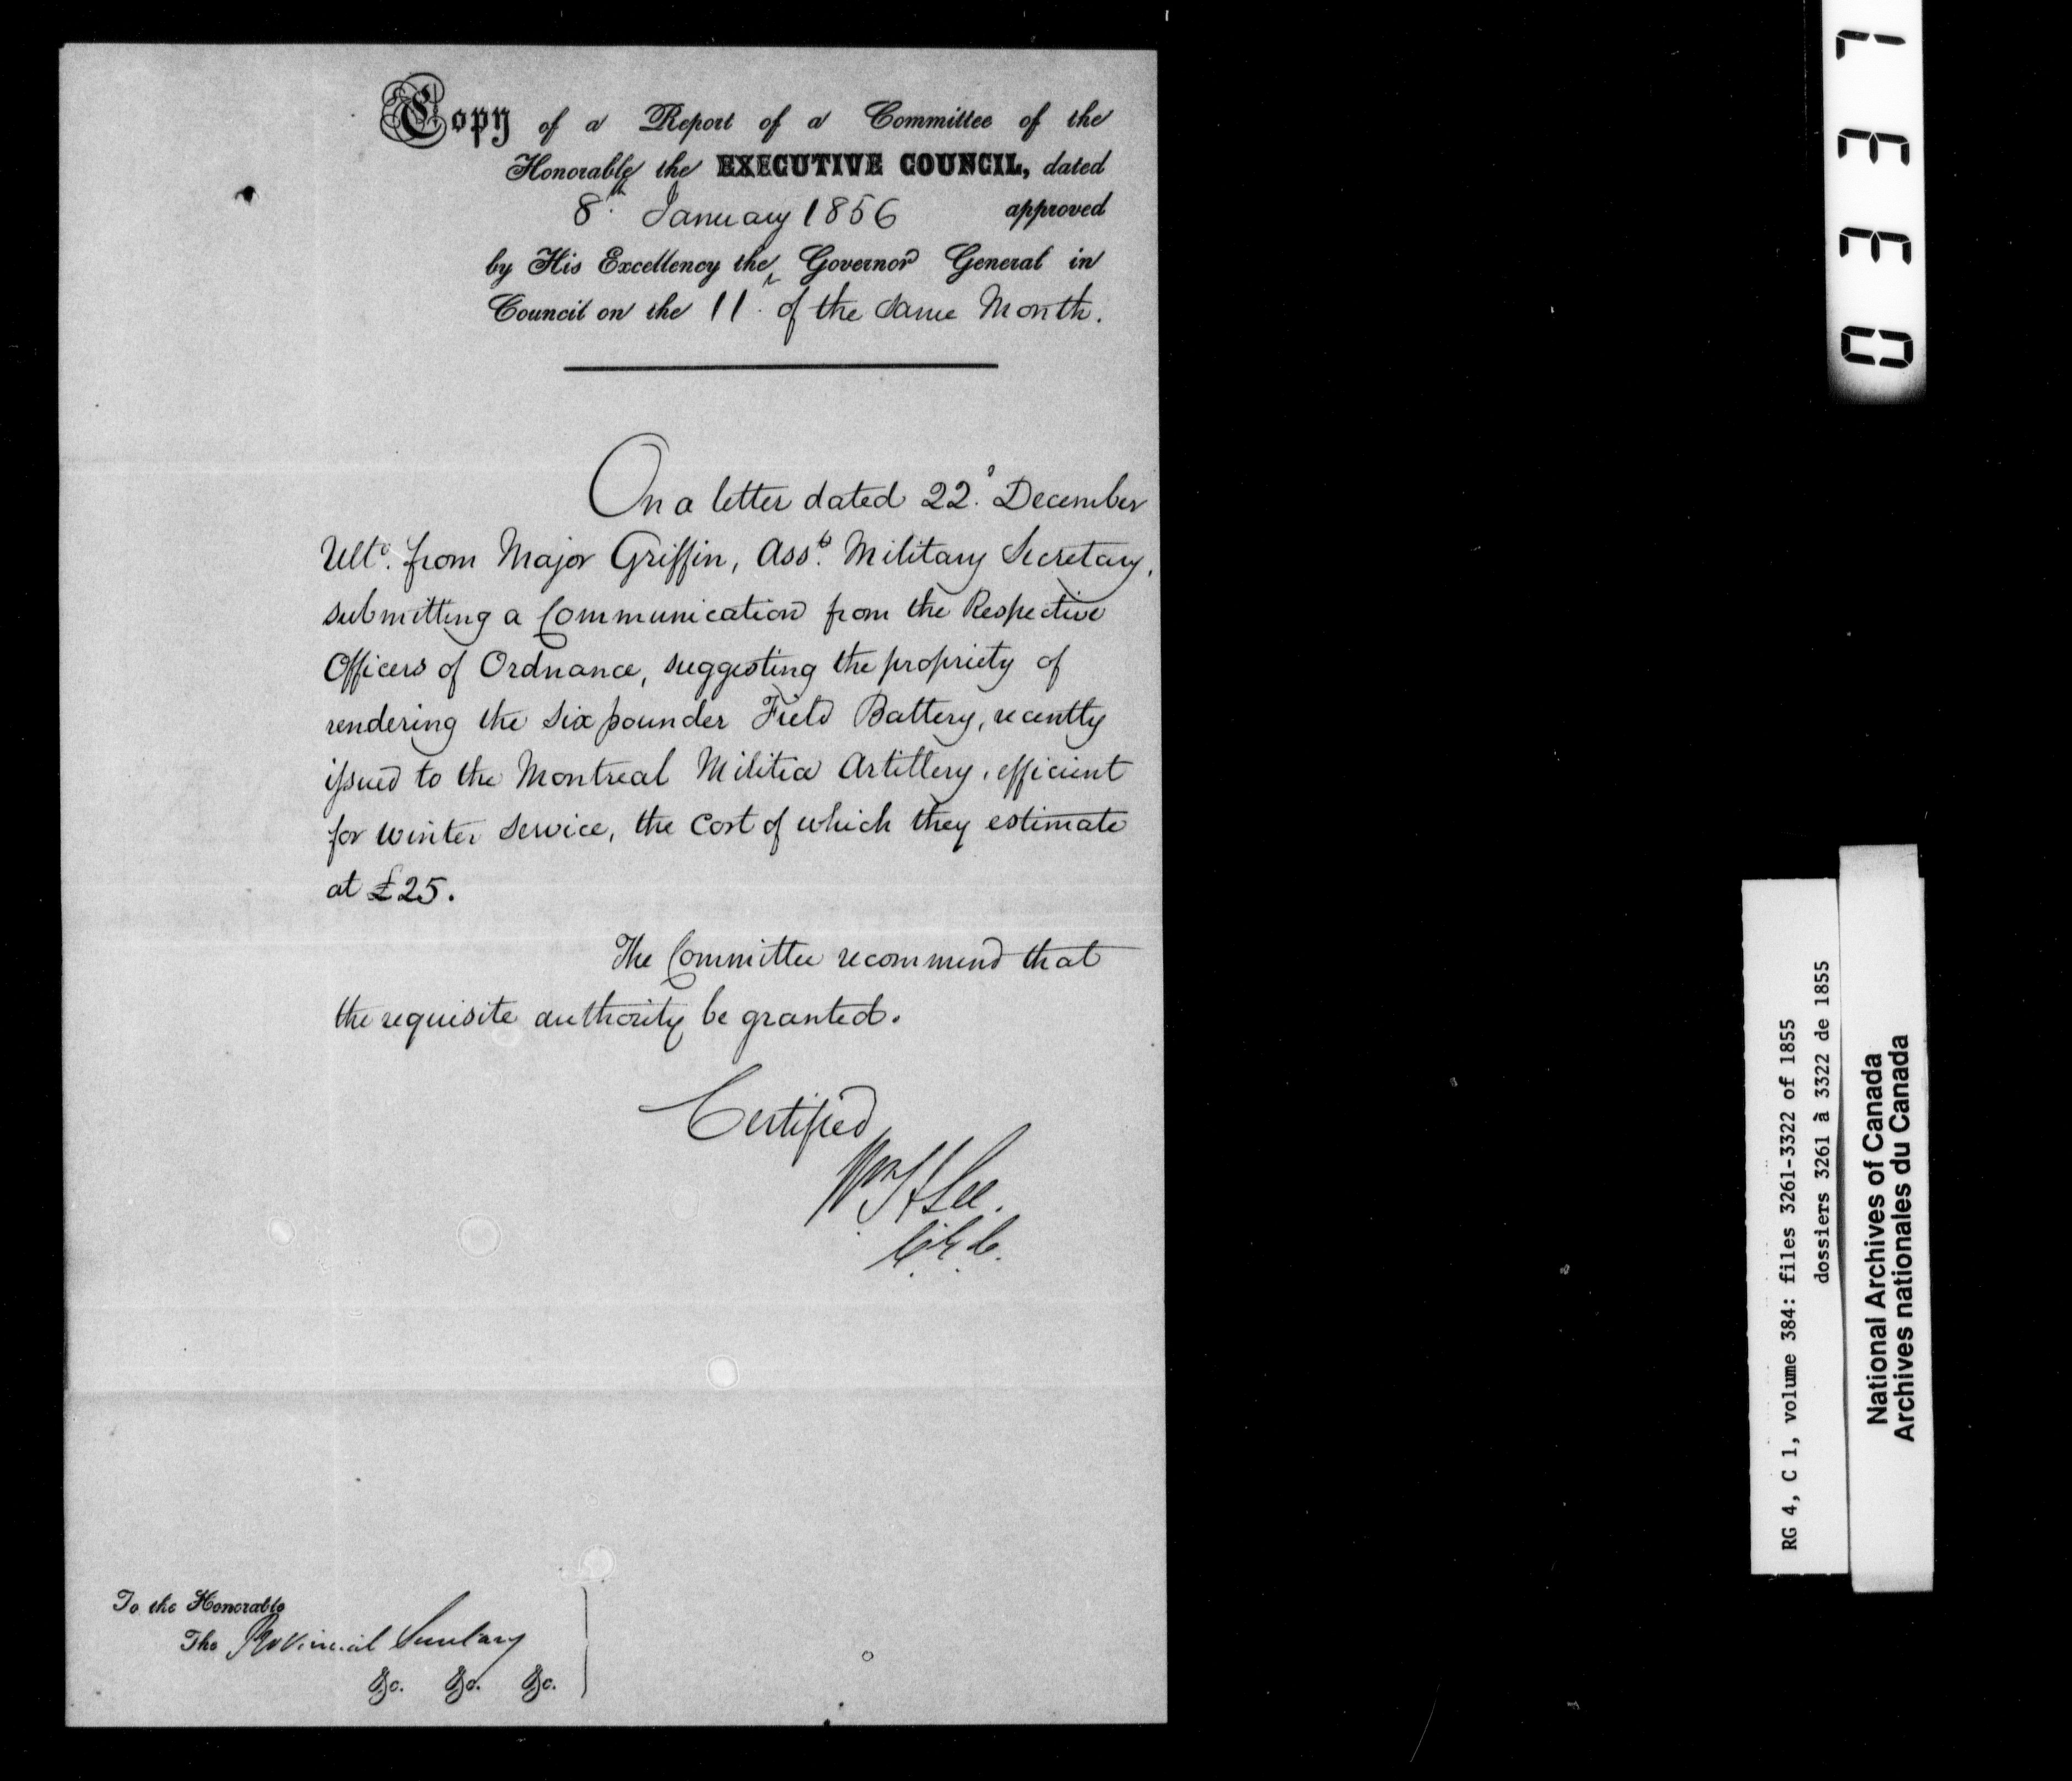 Copy of a Report of a Committee of the
Honorable the EXECUTIVE COUNCIL, dated
8th. January 1856 approved
by His Excellency the Governor General in
Council on the 11th. of the same Month.
On a letter dated 22d. December
Ulto. from Major Griffin, Asst. Military Secretary,
submitting a Communication from the Respective
Officers of Ordnance, suggesting the propriety of
rendering the six pounder Field Battery, recently
issued to the Montreal Militia Artillery, efficient
for winter service, the cost of which they estimate
at £25.
The Committee recommend that
the requisite authority be granted.
Certified
Wm H Lee.
C.E.C.
To the Honorable
The Provincial Secretary
&c. &c. &c.
0337
RG 4, C 1, volume 384: files 3261-3322 of 1855
dossiers 3261 à 3322 de 1855
National Archives of Canada
Archives nationales du Canada